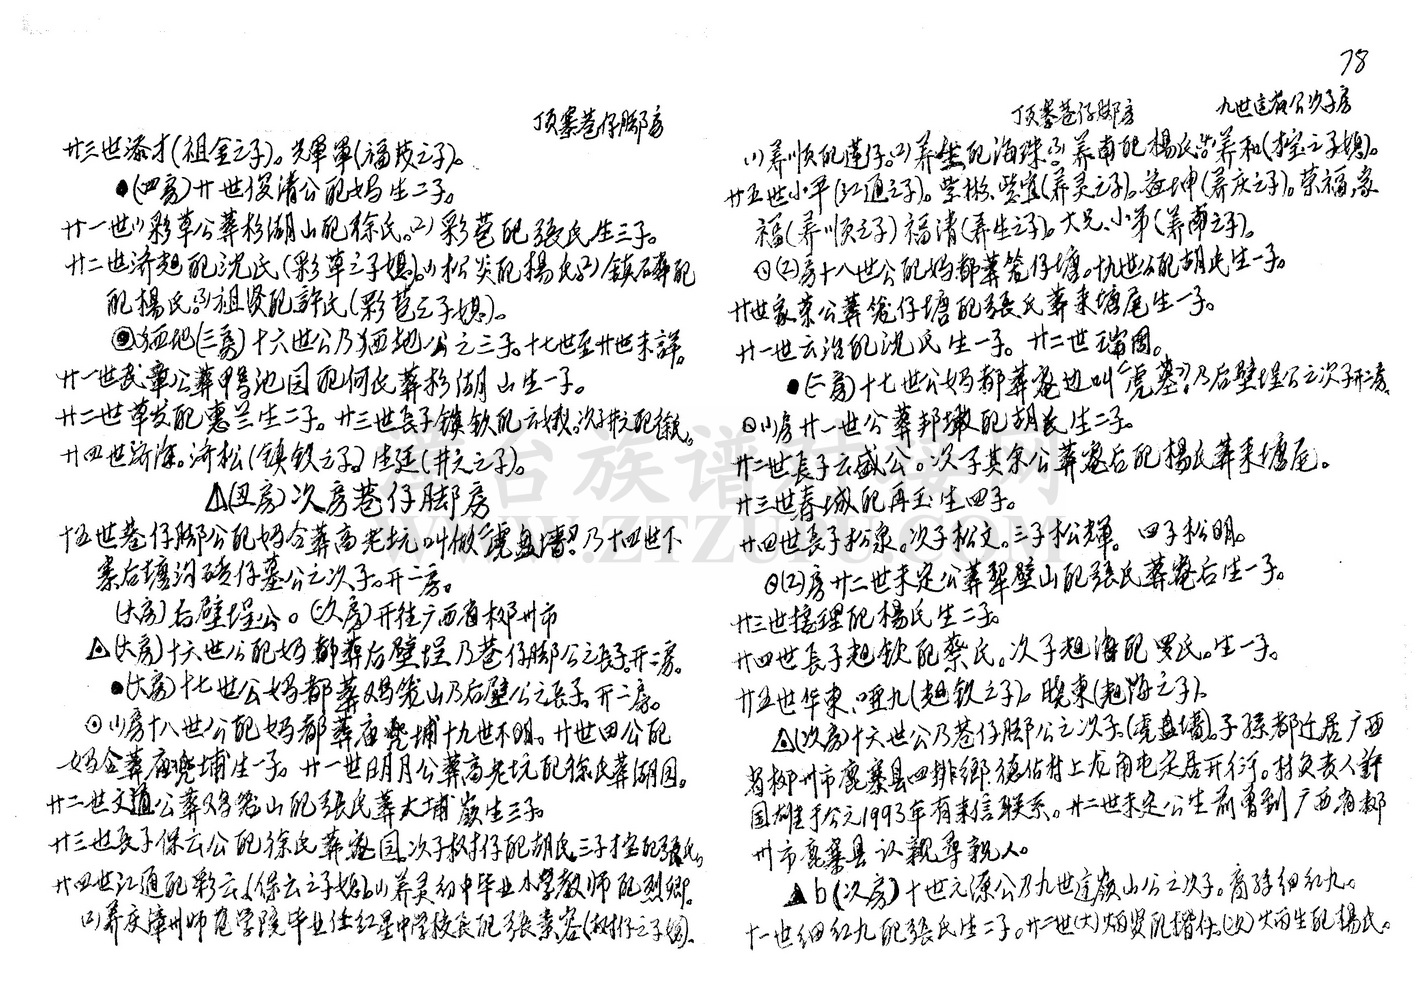 顶寨巷仔脚房
廿三世添才(祖金之子)。光軍軍(福枝之子)。
●(四房)廿世俊清公配妈生二子。
廿一世(1)彩草公葬杉湖山配徐氏。(2)彩苞配張氏生三子。
廿二世济超配沈氏(彩草之子媳)。(1)松炎配楊氏(2)鎮石配
配楊氏。(3)祖贤配許氏(彩苞之子媳)。
狮地(三房)十六世公乃狮地公之三子。十七世至廿世未詳。
廿一世武章公葬鸭池园配何氏葬杉湖山生一子。
廿二世草发配惠兰生二子。廿三世長子鎮钦配云娥。次子井元配徐氏。
廿四世济海。济松(鎮钦之子)生廷(井元之子)。
△(丑房)次房巷仔脚房
十五世巷仔脚公配妈合葬高老坑叫做"虎盘墙"乃十四世下
寨后塘沟碛仔墓公之次子。开二房。
(大房)后壁埕公。(次房)开往广西省柳州市
△(大房)十六世公配妈都葬后壁埕乃巷仔脚公之長子。开二房。
●(大房)十七世公妈都葬鸡笼山乃后壁公之長子。开二房。
⊙(1)房十八世公配妈都葬庙兜埔十九世不明。廿世四公配
妈合葬庙兜埔生一子。廿一世明月公葬高老坑配徐氏葬湖园。
廿二世文通公葬鸡笼山配張氏葬大埔崁生三子。
廿三世長子保云公配徐氏葬窑园。次子树仔配胡氏。三子控配張氏。
廿四世江通配彩云。(保云之子媳)(1)养灵初中毕业小学教师配烈卿。
(2)养庆漳州师范学院毕业任红星中学校長配張素容(树仔之子媳)。
78
顶寨巷仔脚房
九世崁公次子房
(1)养順配莲仔。(2)养生配海珠(3)养南配楊氏(4)养和(控之子媳)。
廿五世小平(江通之子)。荣彬、荣宜(养灵之子)。海坤(养庆之子)。荣福、家
福(养順之子)福清(养生之子)。大兄、小弟(养南之子)。
⊙(2)房十八世公配妈都葬笼仔塘。十九世公配胡氏生一子。
廿世家荣公葬笼仔塘配張氏葬来塘尾生一子。
廿一世云治配沈氏生一子。廿二世瑞国。
●(二房)十七世公妈都葬窑边叫"虎墓"乃后壁埕公之次子开二房。
⊙(1)房廿一世公葬邦墩配胡氏生二子。
廿二世長子云盛公。次子其余公葬窑后配楊氏葬来塘尾。
廿三世春城配再玉生四子。
廿四世長子松泉。次子松文。三子松輝。四子松明。
⊙(2)房廿二世未定公葬翠壁山配張氏葬窑后生一子。
廿三世接理配楊氏生二子。
廿四世長子超钦配蔡氏。次子超海配罗氏。生一子。
廿五世华東、哑九(超钦之子)。曉東(超海之子)。
△(次房)十六世公乃巷仔脚公之次子。(虎盘墙)。子孫都迁居广西
省柳州市鹿寨县四排鄉德佔村上龙角屯定居开衍。村负责人許
国雄于公元1993年有来信联系。廿二世未定公生前曾到广西省柳
州市鹿寨县认親尋親人。
▲b(次房)十世元源公乃九世崁山公之次子。裔孫细红九。
十一世细红九配張氏生二子。廿二世(大)炳贤配楷仔。(次)炳生配楊氏。
港台族谱对接网
WWW.ZTZUPU.COM